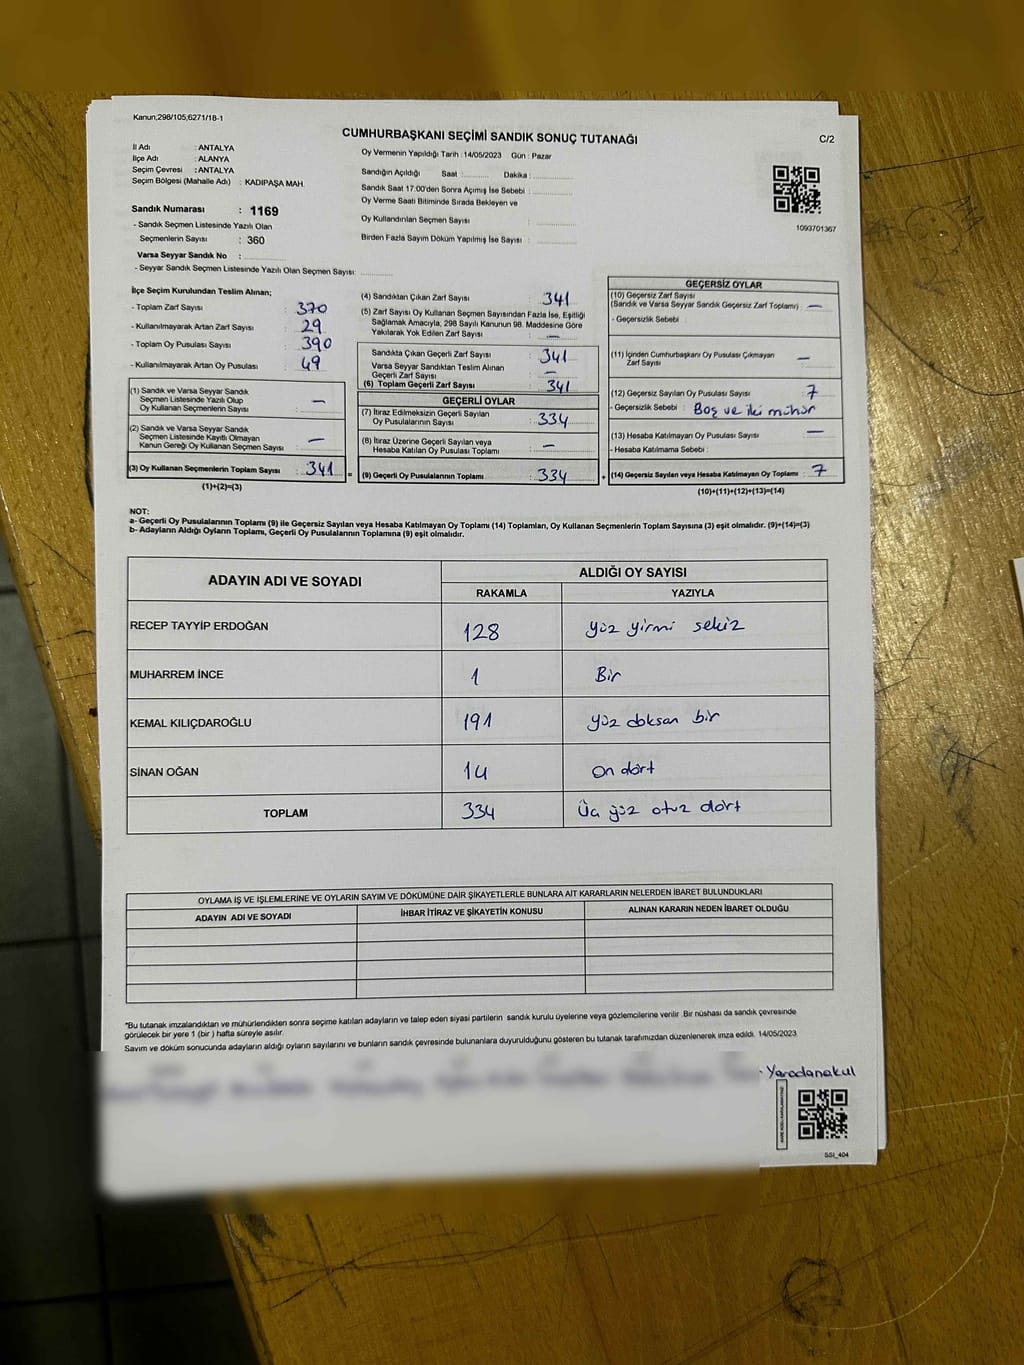 Kanun,298/105,6271/18-1
CUMHURBAŞKANI SEÇİMİ SANDIK SONUÇ TUTANAĞI
C/2
İl Adı : ANTALYA
İlçe Adı : ALANYA
Seçim Çevresi : ANTALYA
Seçim Bölgesi (Mahalle Adı) : KADIPAŞA MAH.
Oy Vermenin Yapıldığı Tarih : 14/05/2023 Gün : Pazar
Sandığın Açıldığı Saat :........... Dakika :...........
Sandık Saat 17:00'den Sonra Açımış İse Sebebi :...........
Oy Verme Saati Bitiminde Sırada Bekleyen ve
Oy Kullandırılan Seçmen Sayısı :...........
Birden Fazla Sayım Döküm Yapılmış İse Sayısı :...........
1093701367
Sandık Numarası : 1169
- Sandık Seçmen Listesinde Yazılı Olan
Seçmenlerin Sayısı : 360
Varsa Seyyar Sandık No :...........
- Seyyar Sandık Seçmen Listesinde Yazılı Olan Seçmen Sayısı:...........
İlçe Seçim Kurulundan Teslim Alınan;
- Toplam Zarf Sayısı : 370
- Kullanılmayarak Artan Zarf Sayısı : 29
- Toplam Oy Pusulası Sayısı : 390
- Kullanılmayarak Artan Oy Pusulası : 49
(1) Sandık ve Varsa Seyyar Sandık
Seçmen Listesinde Yazılı Olup
Oy Kullanan Seçmenlerin Sayısı : —
(2) Sandık ve Varsa Seyyar Sandık
Seçmen Listesinde Kayıtlı Olmayan
Kanun Gereği Oy Kullanan Seçmen Sayısı : —
(3) Oy Kullanan Seçmenlerin Toplam Sayısı : 341 =
(1)+(2)=(3)
(4) Sandıktan Çıkan Zarf Sayısı : 341
(5) Zarf Sayısı Oy Kullanan Seçmen Sayısından Fazla İse, Eşitliği
Sağlamak Amacıyla, 298 Sayılı Kanunun 98. Maddesine Göre
Yakılarak Yok Edilen Zarf Sayısı : —
Sandıkta Çıkan Geçerli Zarf Sayısı : 341
Varsa Seyyar Sandıktan Teslim Alınan
Geçerli Zarf Sayısı : —
(6) Toplam Geçerli Zarf Sayısı : 341
GEÇERLİ OYLAR
(7) İtiraz Edilmeksizin Geçerli Sayılan
Oy Pusulasının Sayısı : 334
(8) İtiraz Üzerine Geçerli Sayılan veya
Hesaba Katılan Oy Pusulası Toplamı : —
(9) Geçerli Oy Pusulalarının Toplamı : 334 +
GEÇERSİZ OYLAR
(10) Geçersiz Zarf Sayısı
(Sandık ve Varsa Seyyar Sandık Geçersiz Zarf Toplamı) : —
- Geçersizlik Sebebi
(11) İçinden Cumhurbaşkanı Oy Pusulası Çıkmayan
Zarf Sayısı —
(12) Geçersiz Sayılan Oy Pusulası Sayısı : 7
- Geçersizlik Sebebi : Boş ve iki mühür
(13) Hesaba Katılmayan Oy Pusulası Sayısı : —
- Hesaba Katılmama Sebebi :
(14) Geçersiz Sayılan veya Hesaba Katılmayan Oy Toplamı : 7
(10)+(11)+(12)+(13)=(14)
NOT:
a- Geçerli Oy Pusulalarının Toplamı (9) ile Geçersiz Sayılan veya Hesaba Katılmayan Oy Toplamı (14) Toplamları, Oy Kullanan Seçmenlerin Toplam Sayısına (3) eşit olmalıdır. (9)+(14)=(3)
b- Adayların Aldığı Oyların Toplamı, Geçerli Oy Pusulalarının Toplamına (9) eşit olmalıdır.
ADAYIN ADI VE SOYADI
ALDIĞI OY SAYISI
RAKAMLA YAZIYLA
RECEP TAYYİP ERDOĞAN 128 yüz yirmi sekiz
MUHARREM İNCE 1 Bir
KEMAL KILIÇDAROĞLU 191 yüz doksan bir
SİNAN OĞAN 14 on dört
TOPLAM 334 Üç yüz otuz dört
OYLAMA İŞ VE İŞLEMLERİNE VE OYLARIN SAYIM VE DÖKÜMÜNE DAİR ŞİKAYETLERLE BUNLARA AİT KARARLARIN NELERDEN İBARET BULUNDUKLARI
ADAYIN ADI VE SOYADI İHBAR İTİRAZ VE ŞİKAYETİN KONUSU ALINAN KARARIN NEDEN İBARET OLDUĞU
*Bu tutanak imzalandıktan ve mühürlendikten sonra seçime katılan adayların ve talep eden siyasi partilerin sandık kurulu üyelerine veya gözlemcilerine verilir .Bir nüshası da sandık çevresinde
görülecek bir yere 1 (bir ) hafta süreyle asılır.
Sayım ve döküm sonucunda adayların aldığı oyların sayılarını ve bunların sandık çevresinde bulunanlara duyurulduğunu gösteren bu tutanak tarafımızdan düzenlenerek imza edildi. 14/05/2023
- Yaradanakul
SSI_404